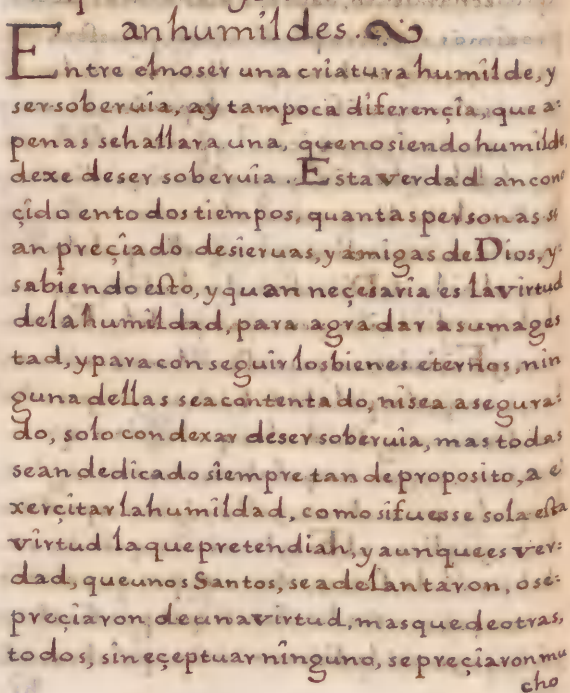 an humildes.
Entre el no ser una criatura humilde, y
ser soberuia, ay tam poca diferençia, que a:
penas se hallara una, que no siendo humilde,
dexe de ser soberuia. Esta verdad an cono
çido en todos tiempos, quantas personas se
an preçiado de sieruas, y amigas de Dios, y:
sabiendo esto, y quan neçesaria es la virtud
de la humildad, para agradar a su mages
tad, y para conseguir los bienes eternos, nin
guna dellas se a contentado, ni se a asegura:
do, solo con dexar de ser soberuia, mas todas
se an dedicado siempre tan de proposito, a e
xerçitar la humildad, como si fuesse sola esta
virtud la que pretendian, y aunque es ver:
dad, que unos Santos, se adelantaron, o se:
preçiaron de una virtud, mas que de otras,
todos, sin eçeptuar ninguno, se preçiaron mu
cho